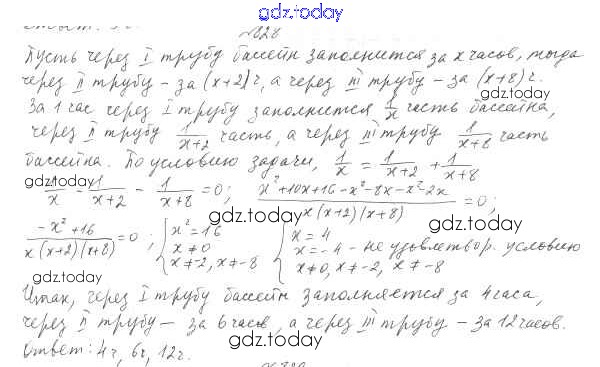 gdz.today
№728
Пусть через I трубу бассейн заполнится за x часов, тогда
через II трубу – за (x+2)ч, а через III трубу – за (x+8)ч.
gdz.today gdz.today
За 1 час через I трубу заполнится 1/x часть бассейна,
через II трубу 1/(x+2) часть, а через III трубу 1/(x+8) часть
gdz.today
бассейна. По условию задачи, 1/x = 1/(x+2) + 1/(x+8)
1/x - 1/(x+2) - 1/(x+8) = 0; (x²+10x+16-x²-8x-x²-2x)/(x(x+2)(x+8)) = 0;
gdz.today
(-x²+16)/(x(x+2)(x+8)) = 0; { x²=16 x≠0 x≠-2, x≠-8 { x=4 x=-4 - не удовлетвор. условию x≠0, x≠-2, x≠-8
gdz.today gdz.today
Итак, через I трубу бассейн заполняется за 4 часа,
через II трубу – за 6 часов, а через III трубу – за 12 часов.
Ответ: 4ч, 6ч, 12ч.
gdz.today gdz.today